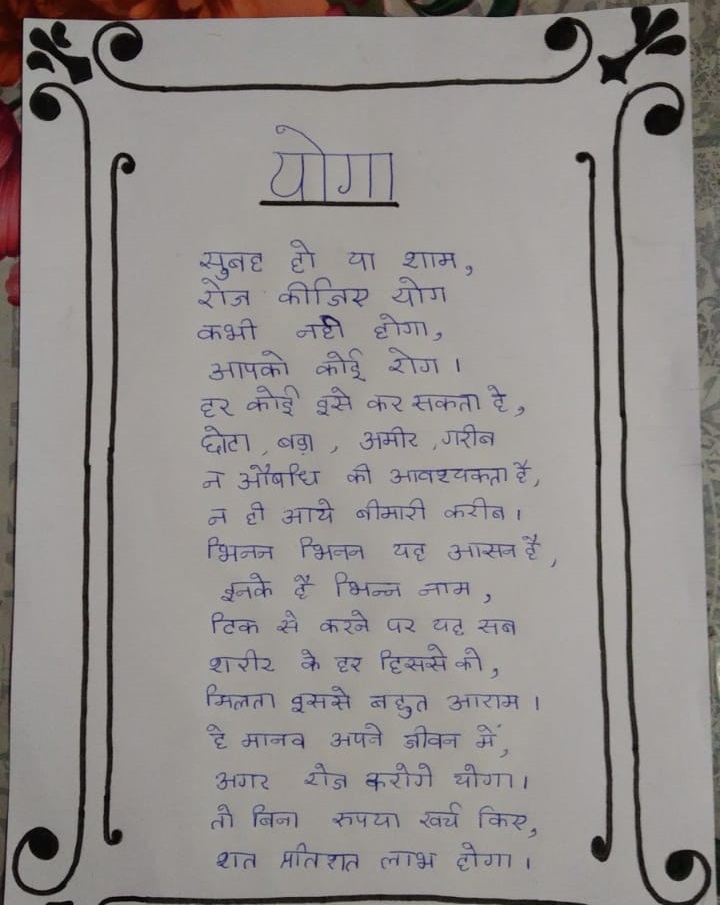 योगा
सुबह हो या शाम,
रोज कीजिए योग
कभी नही होगा,
आपको कोई रोग।
हर कोई इसे कर सकता है,
छोटा, बड़ा, अमीर, गरीब
न औषधि की आवश्यकता है,
न ही आये बीमारी करीब।
भिनन भिनन यह आसन है,
इनके है भिन्न नाम,
ठिक से करने पर यह सब
शरीर के हर हिससे को,
मिलता इससे बहुत आराम।
हे मानव अपने जीवन में,
अगर रोज करोगे योगा।
तो बिना रुपया खर्च किए,
शत प्रतिशत लाभ होगा।